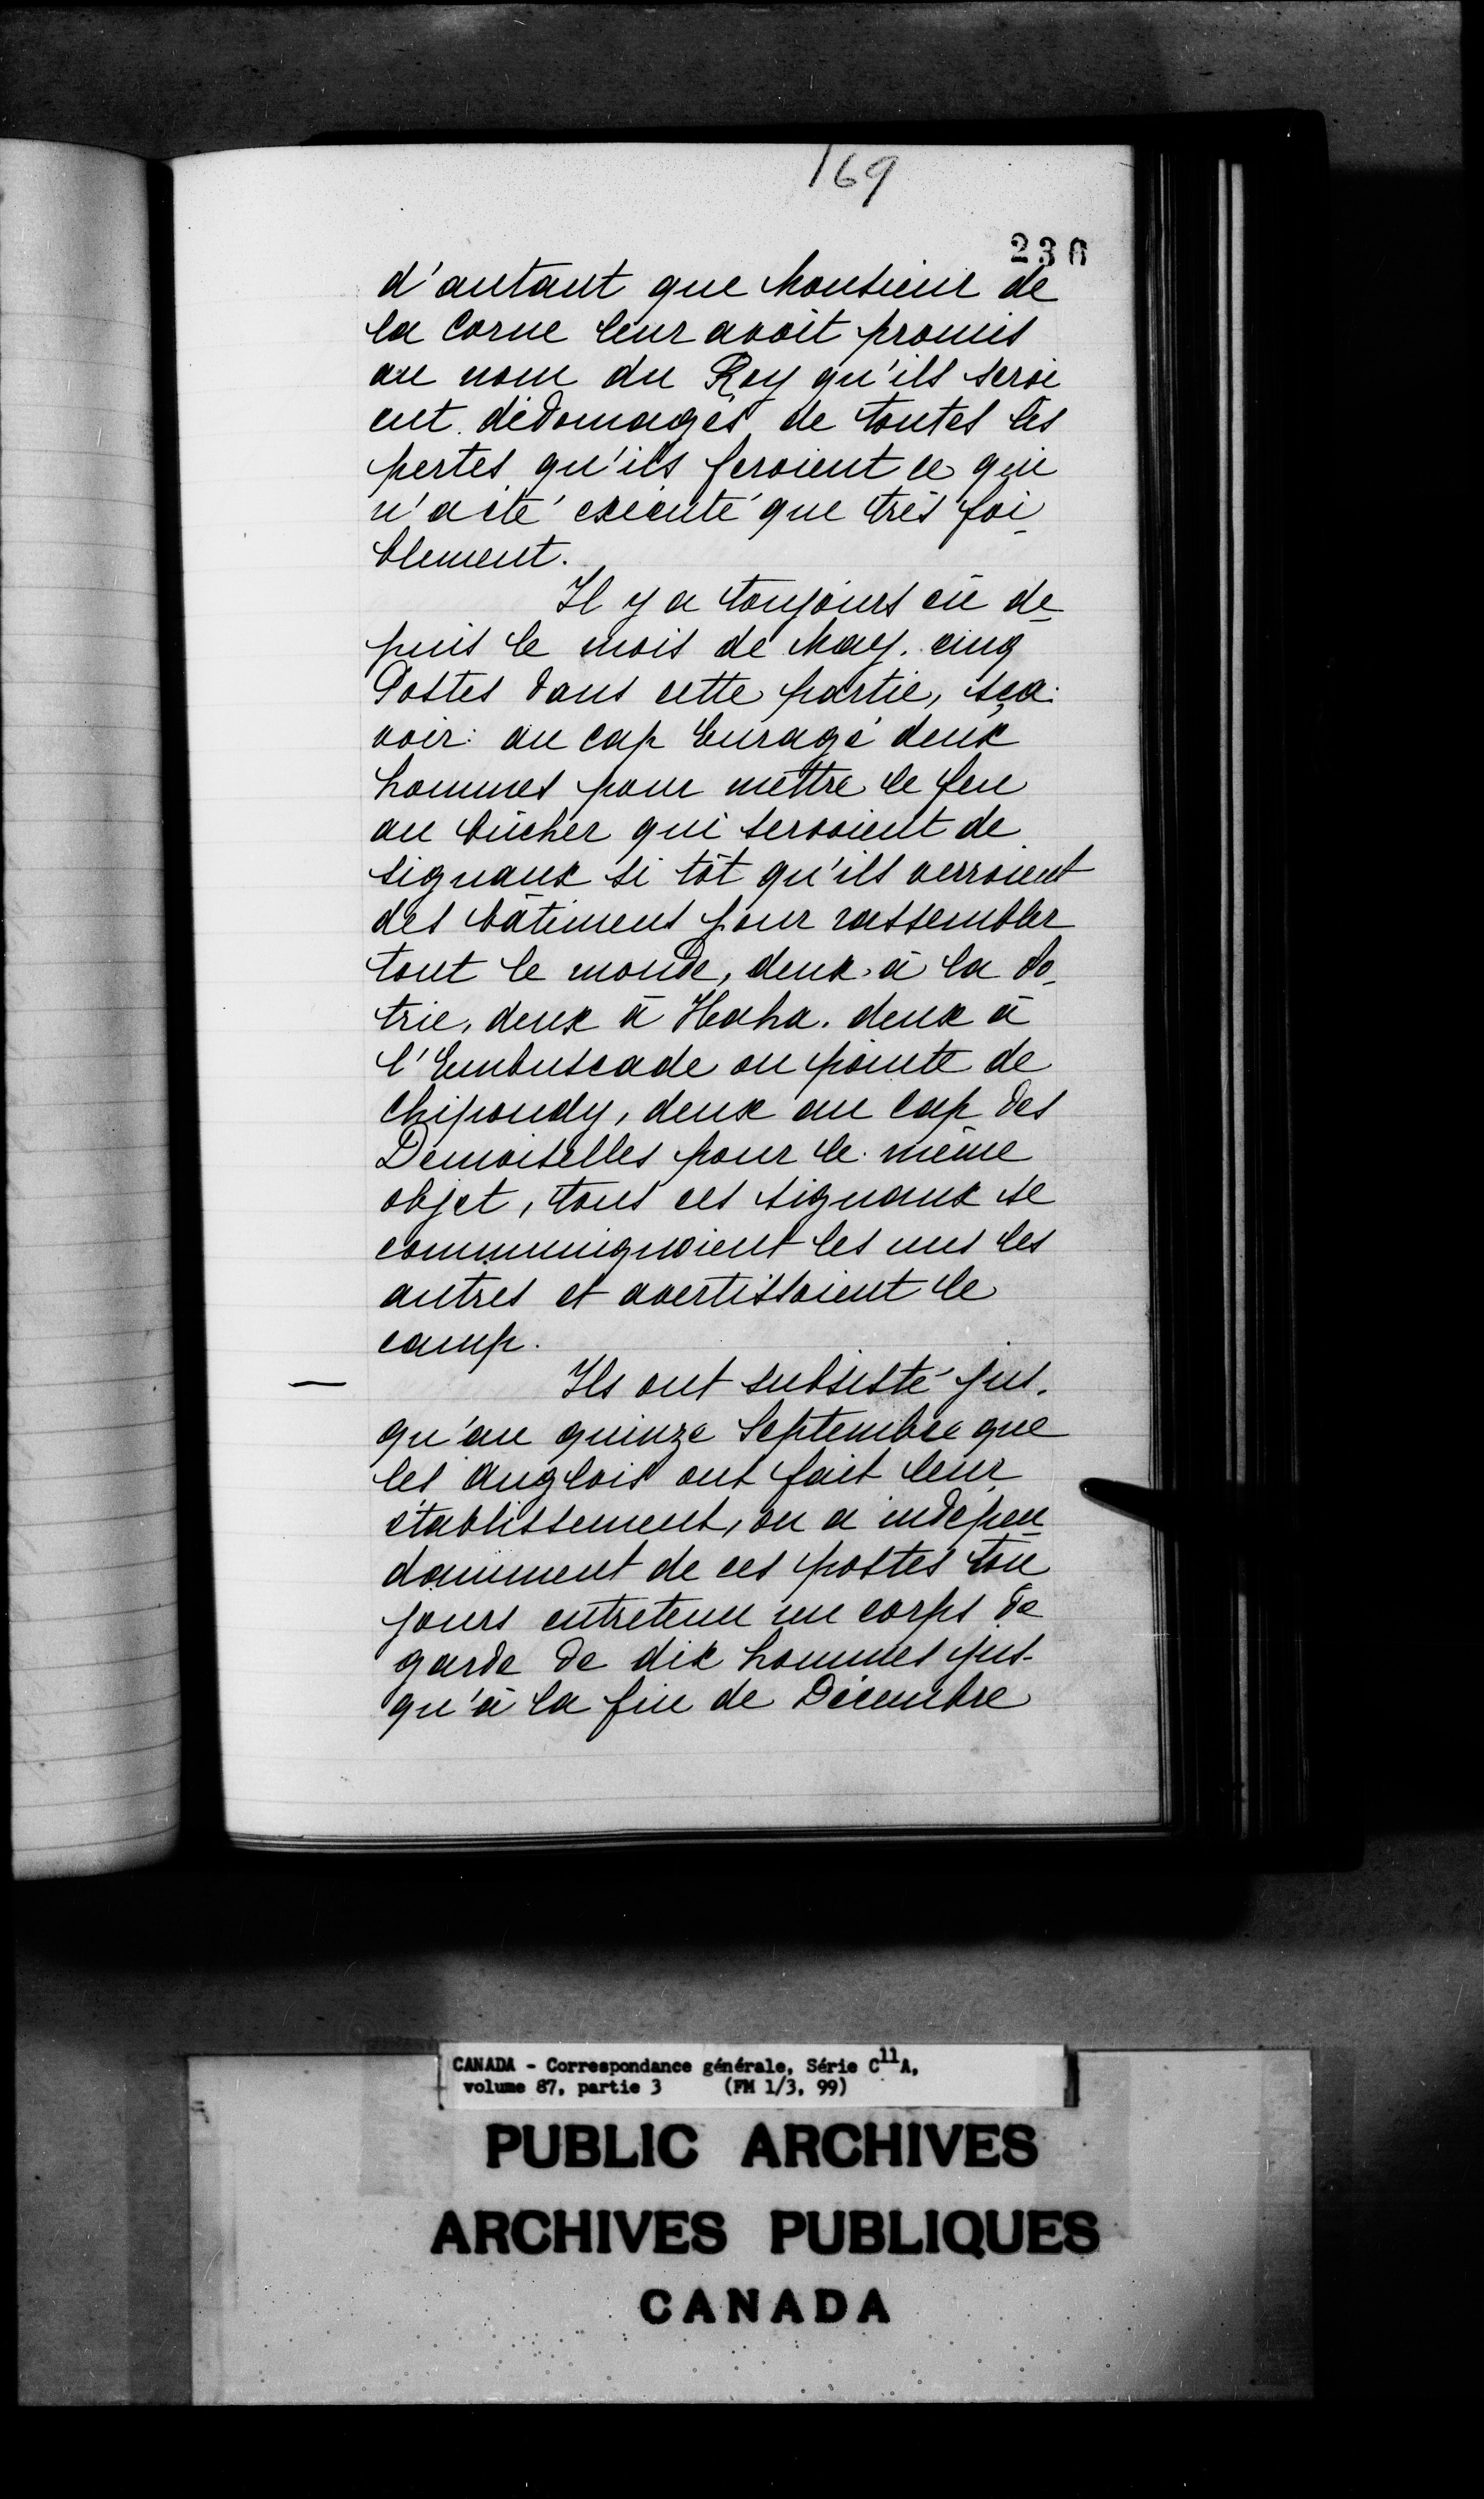 169
236
d'autant que Monsieur de
la Corne leur avoit promis
au nom du Roy qu'ils seroi
ent dédomagés de toutes les
pertes qu'ils feroient ce qui
n'a été éxécuté que très foi_
blement.
Il y a toujours eû de_
puis le mois de May. cinq
Postes dans cette partie, sça-
voir: au cap Enragé deux
hommes pour mettre le feu
au bûcher qui servoient de
signaux si tôt qu'ils verroient
des bâtiments pour rassembler
tout le monde, deux à la Po_
trie, deux à Haha. deux à
l'Embuscade ou pointe de
Chipoudy, deux au cap des
Demoiselles pour le même
objet, tous ces signaux se
communiquoient les uns les
autres et avertissoient le
camp.
— Ils ont subsisté jus-
qu'au quinze Septembre que
les Anglois ont fait leur
établissement, on a indépen_
damment de ces postes tou
jours entretenu un corps de
garde de dix hommes jus-
qu'à la fin de Décembre
CANADA - Correspondance générale, Série C11A,
volume 87, partie 3 (FM 1/3, 99)
PUBLIC ARCHIVES
ARCHIVES PUBLIQUES
CANADA